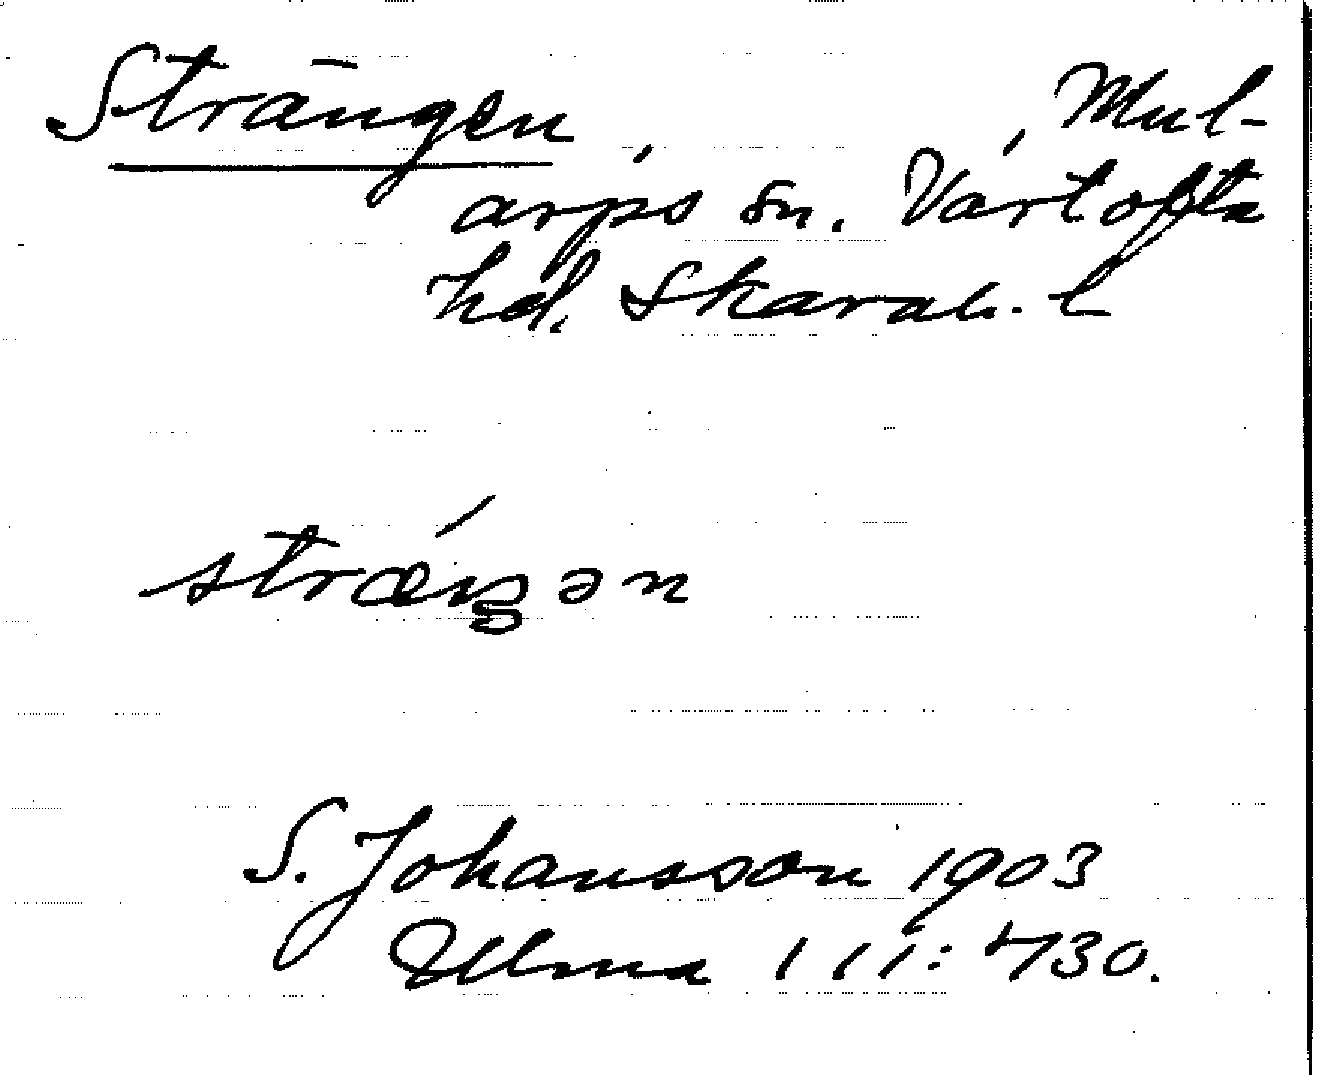 Strängen, Mul-
arps sn. Vartofta
hd. Skarab. l
stræŋən
S. Johansson 1903
Ulma 111: 730.